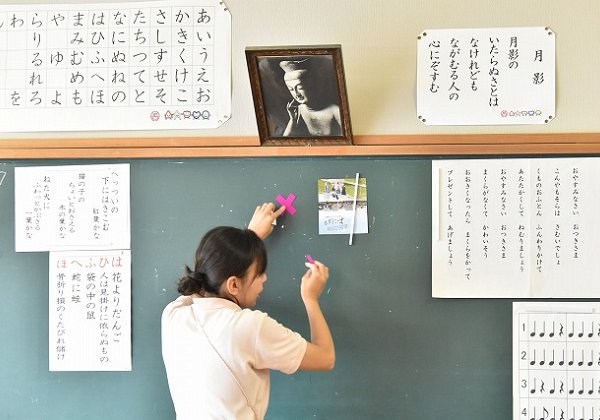 あいうえお
かきくけこ
さしすせそ
たちつてと
なにぬねの
はひふへほ
まみむめも
や ゆ よ
らりるれろ
わ を
月影
月影の
いたらぬさとは
なけれども
ながむる人の
心にぞすむ
へっついの
下にはきこむ
紅葉かな
猫の子の
ちょいとおさえる
木の葉かな
ねた犬に
ふわっとかぶさる
一葉かな
はひふへほ
花よりだんご
人は見掛けに依らぬもの
袋の中の鼠
蛇に蛙
骨折り損のくたびれ儲け
おやすみなさい おつきさま
こんやもそらは さむいでしょ
くものおふとん ふんわりかけて
あたたかくして ねむりましょう
おやすみなさい おつきさま
まくらがなくて かわいそう
おおきくなったら まくらをかって
プレゼントして あげましょう